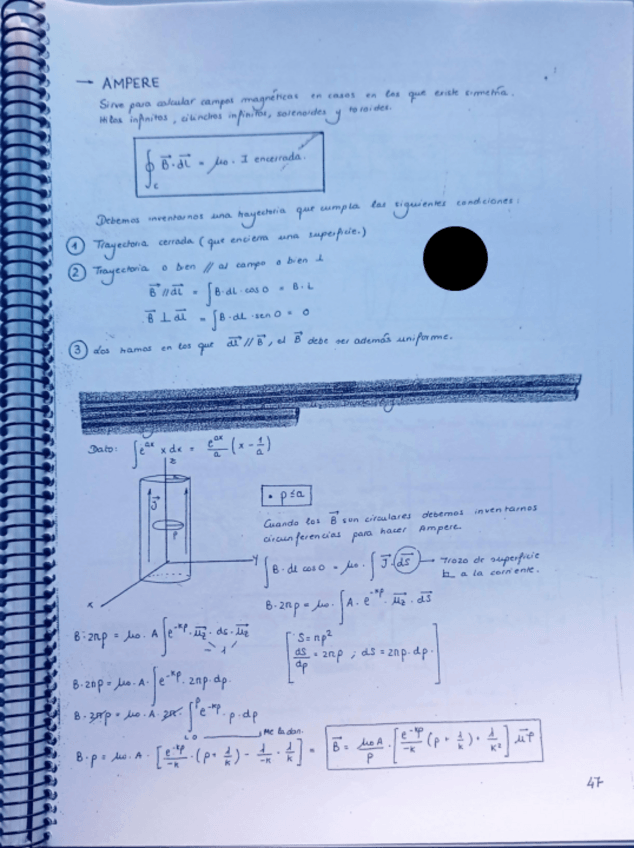 → AMPERE
Sirve para calcular campos magnéticos en casos en los que existe simetría.
Hilos infinitos, cilindros infinitos, solenoides y toroides.
∮_C B⃗·dL⃗ = μ₀ · I encerrada.
Debemos inventarnos una trayectoria que cumpla las siguientes condiciones:
① Trayectoria cerrada (que encierra una superficie.)
② Trayectoria o bien // al campo o bien ⊥
B⃗ // dL⃗ = ∫B·dL·cos0 = B·L
B⃗ ⊥ dL⃗ = ∫B·dL·sen0 = 0
③ Los tramos en los que dL⃗ // B⃗, el B⃗ debe ser además uniforme.
Dato: ∫e^{ax} x dx = e^{ax}/a (x - 1/a)
z
J⃗
ρ
y
x
• ρ≤a
Cuando los B⃗ son circulares debemos inventarnos
circunferencias para hacer Ampere.
∫B·dl cos0 = μ₀·∫J⃗·dS⃗ → Trozo de superficie
⊥ a la corriente.
B·2πρ = μ₀·∫A·e^{-kρ}·u⃗z·dS⃗
B·2πρ = μ₀·A∫e^{-kρ}·u⃗z·ds·u⃗z
1
[S=πρ²
dS/dρ = 2πρ ; dS = 2πρ·dρ.]
B·2πρ = μ₀·A·∫e^{-kρ}·2πρ·dρ.
B·2πρ = μ₀·A·2π·∫₀^ρ e^{-kρ}·ρ·dρ
Me la dan.
B·ρ = μ₀·A·[e^{-kρ}/-k·(ρ+1/k) - 1/-k·1/k] = B⃗ = μ₀A/ρ·[e^{-kρ}/-k (ρ+1/k) + 1/k²] u⃗φ
47